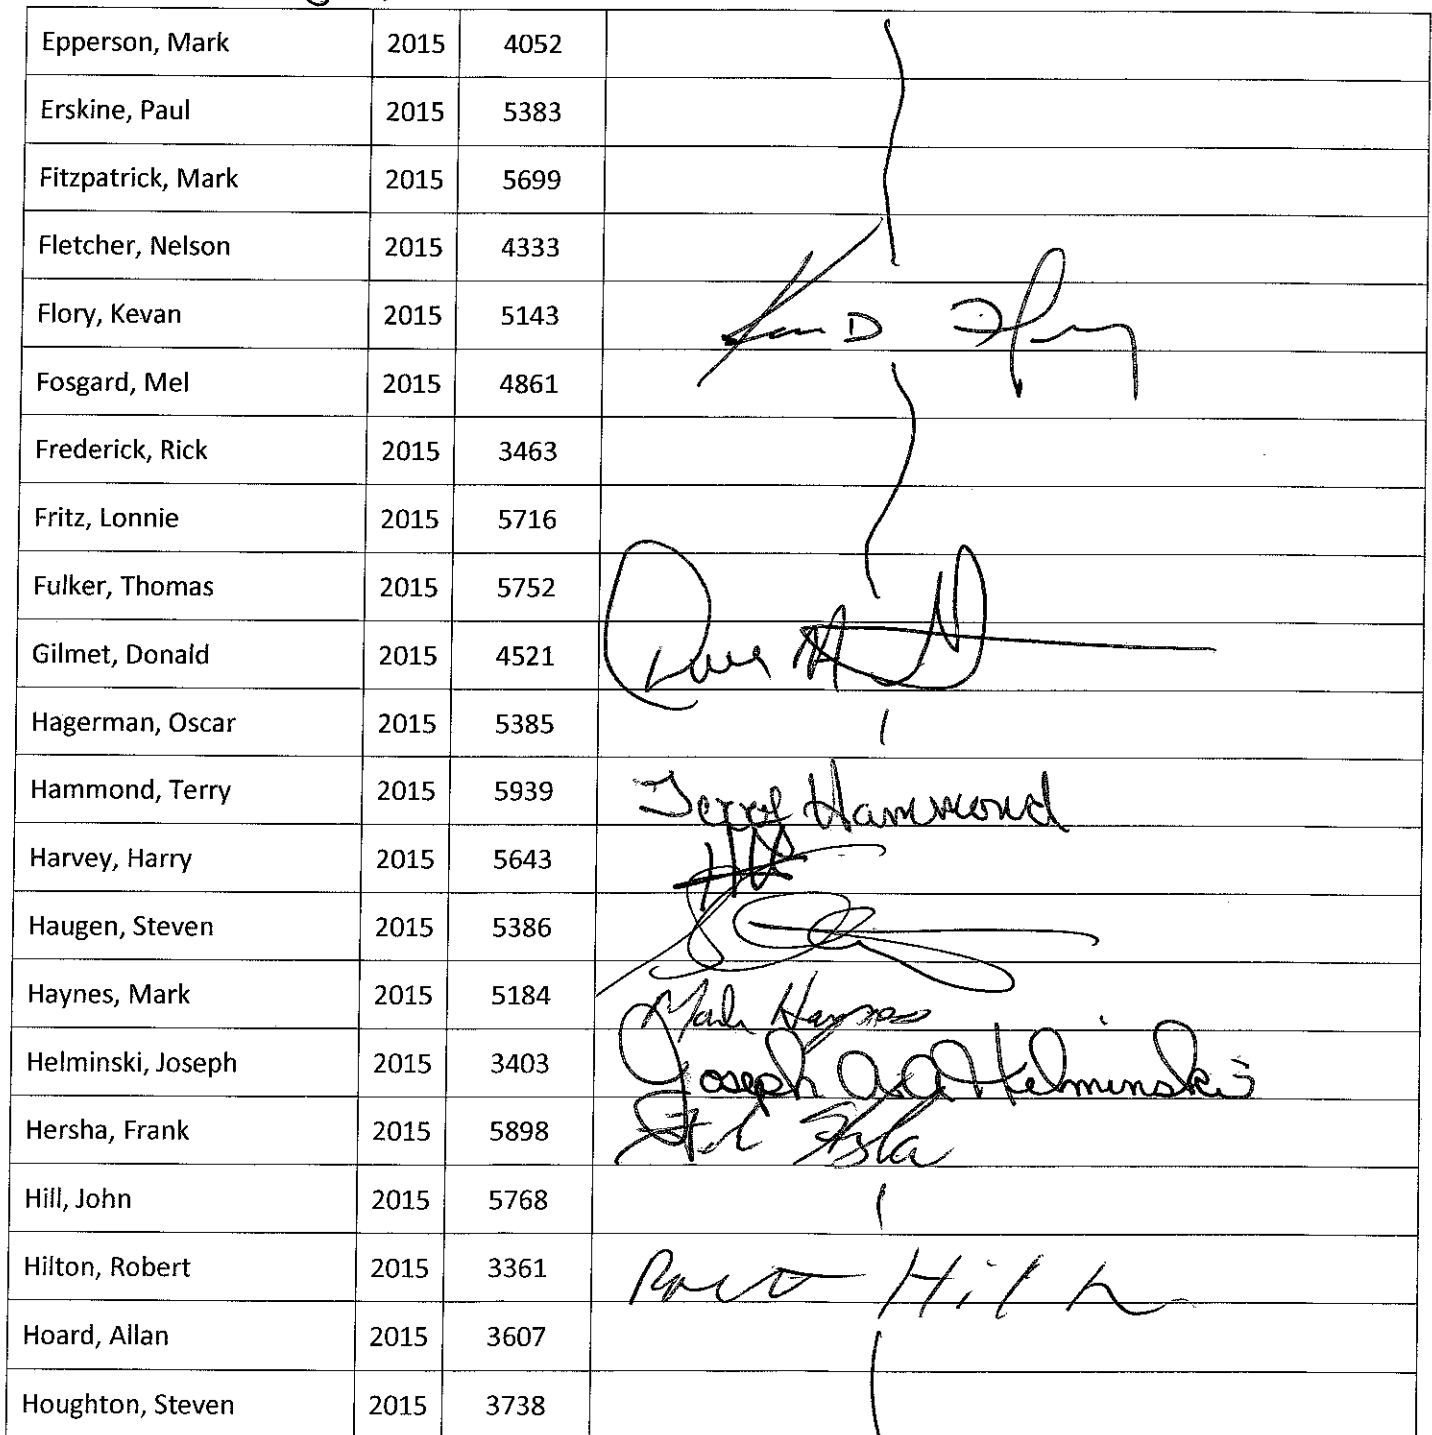 Epperson, Mark 2015 4052
Erskine, Paul 2015 5383
Fitzpatrick, Mark 2015 5699
Fletcher, Nelson 2015 4333
Flory, Kevan 2015 5143 D
Fosgard, Mel 2015 4861
Frederick, Rick 2015 3463
Fritz, Lonnie 2015 5716
Fulker, Thomas 2015 5752
Gilmet, Donald 2015 4521
Hagerman, Oscar 2015 5385
Hammond, Terry 2015 5939 Terry Hammond
Harvey, Harry 2015 5643
Haugen, Steven 2015 5386
Haynes, Mark 2015 5184 Mark Haynes
Helminski, Joseph 2015 3403 Joseph Helminski
Hersha, Frank 2015 5898
Hill, John 2015 5768
Hilton, Robert 2015 3361
Hoard, Allan 2015 3607
Houghton, Steven 2015 3738